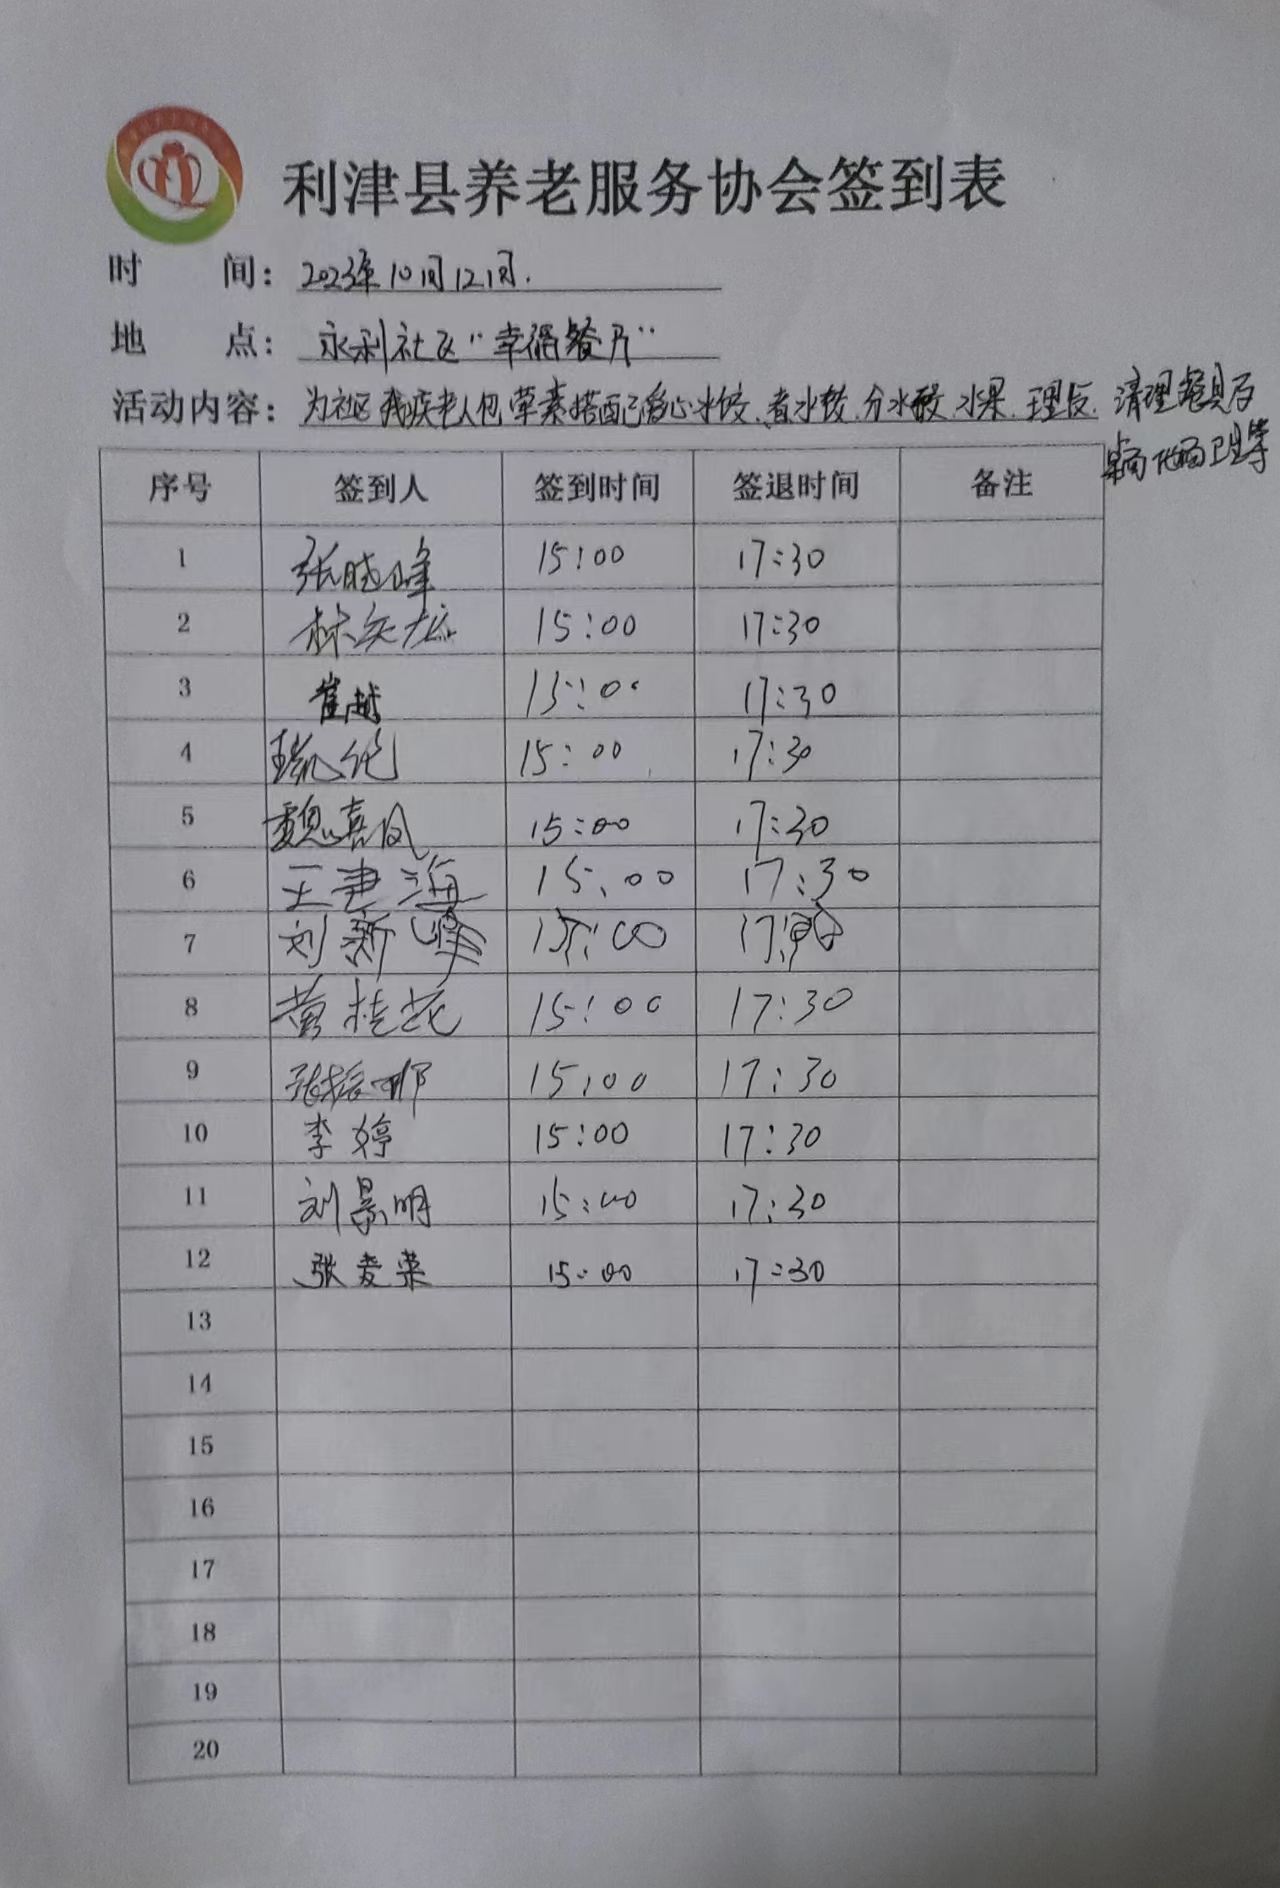 利津县养老服务协会签到表
时 间：2023年10月12日.
地 点：永利社区“幸福餐厅”
活动内容：为社区残疾老人包荤素搭配爱心水饺、煮水饺、分水饺、水果、理发、清理餐具及
桌面地面卫生等
序号 签到人 签到时间 签退时间 备注
1 张晓峰 15:00 17:30
2 林 15:00 17:30
3 崔越 15:00 17:30
4 15:00 17:30
5 魏喜凤 15:00 17:30
6 王建海 15:00 17:30
7 刘新峰 15:00 17:30
8 黄桂花 15:00 17:30
9 张振 15:00 17:30
10 李婷 15:00 17:30
11 刘景明 15:00 17:30
12 张爱荣 15:00 17:30
13
14
15
16
17
18
19
20